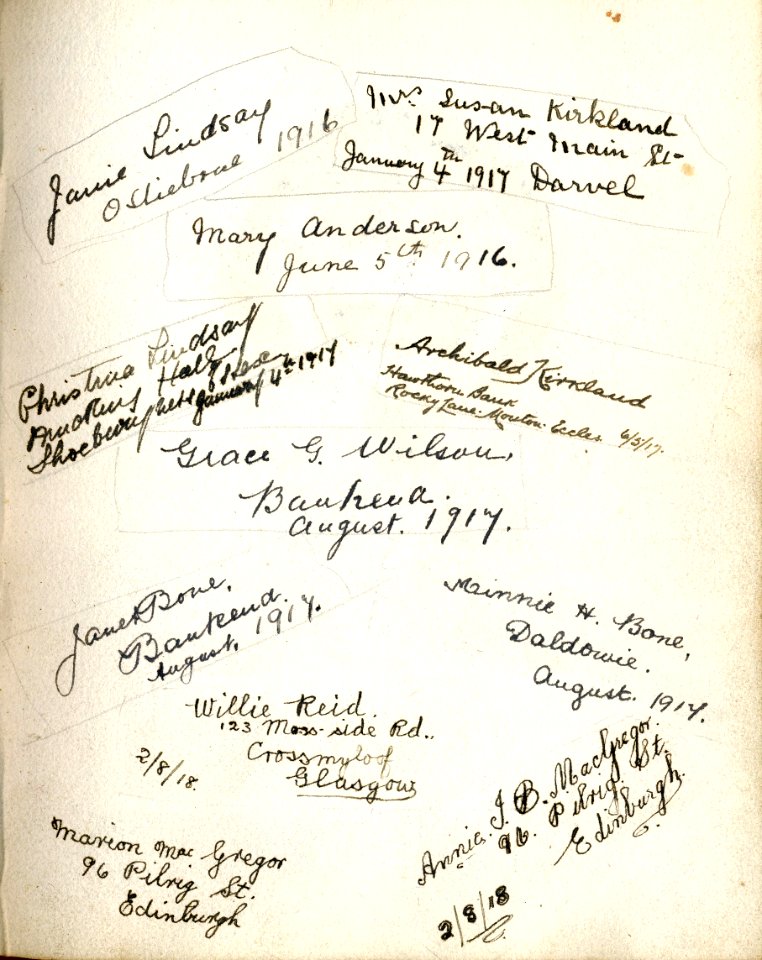 Janie Lindsay
1916
Mrs. Susan Kirkland
17 West Main St.
January 4th 1917 Darvel
Mary Anderson.
June 5th 1916.
Christina Lindsay
Hall
Shoeburyness, Essex
January 4th 1917
Archibald Kirkland
Hawthorn Bank
Rocky Lane. Monton. Eccles 6/5/17.
Grace G. Wilson,
Bankend.
August. 1917.
Janet Bone,
Bankend.
August, 1917.
Minnie H. Bone,
Daldowie.
August. 1917.
Willie Reid.
123 Moss-side Rd.,
Crossmyloof
Glasgow
2/8/18.
Annie. I. B. MacGregor.
96. Pilrig. St.
Edinburgh.
2/8/18
Marion Mac Gregor
96 Pilrig St.
Edinburgh